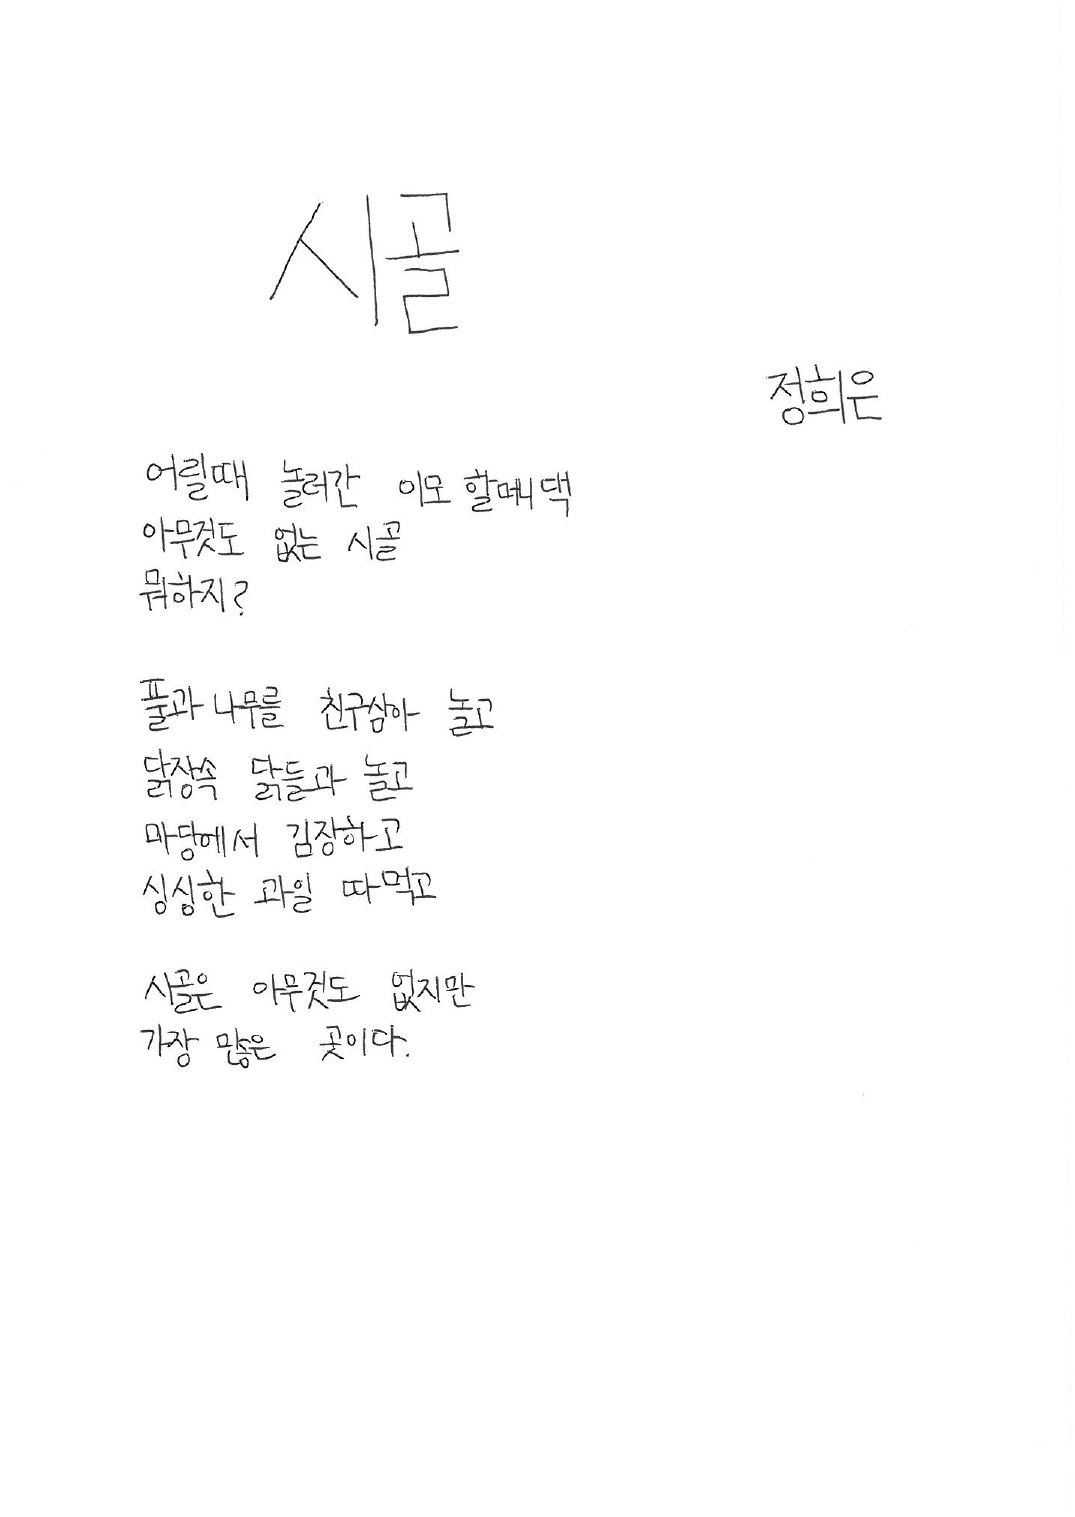 시골
정희은
어릴때 놀러간 이모 할머니 댁
아무것도 없는 시골
뭐하지?
풀과 나무를 친구삼아 놀고
닭장속 닭들과 놀고
마당에서 김장하고
싱싱한 과일 따먹고
시골은 아무것도 없지만
가장 많은 곳이다.